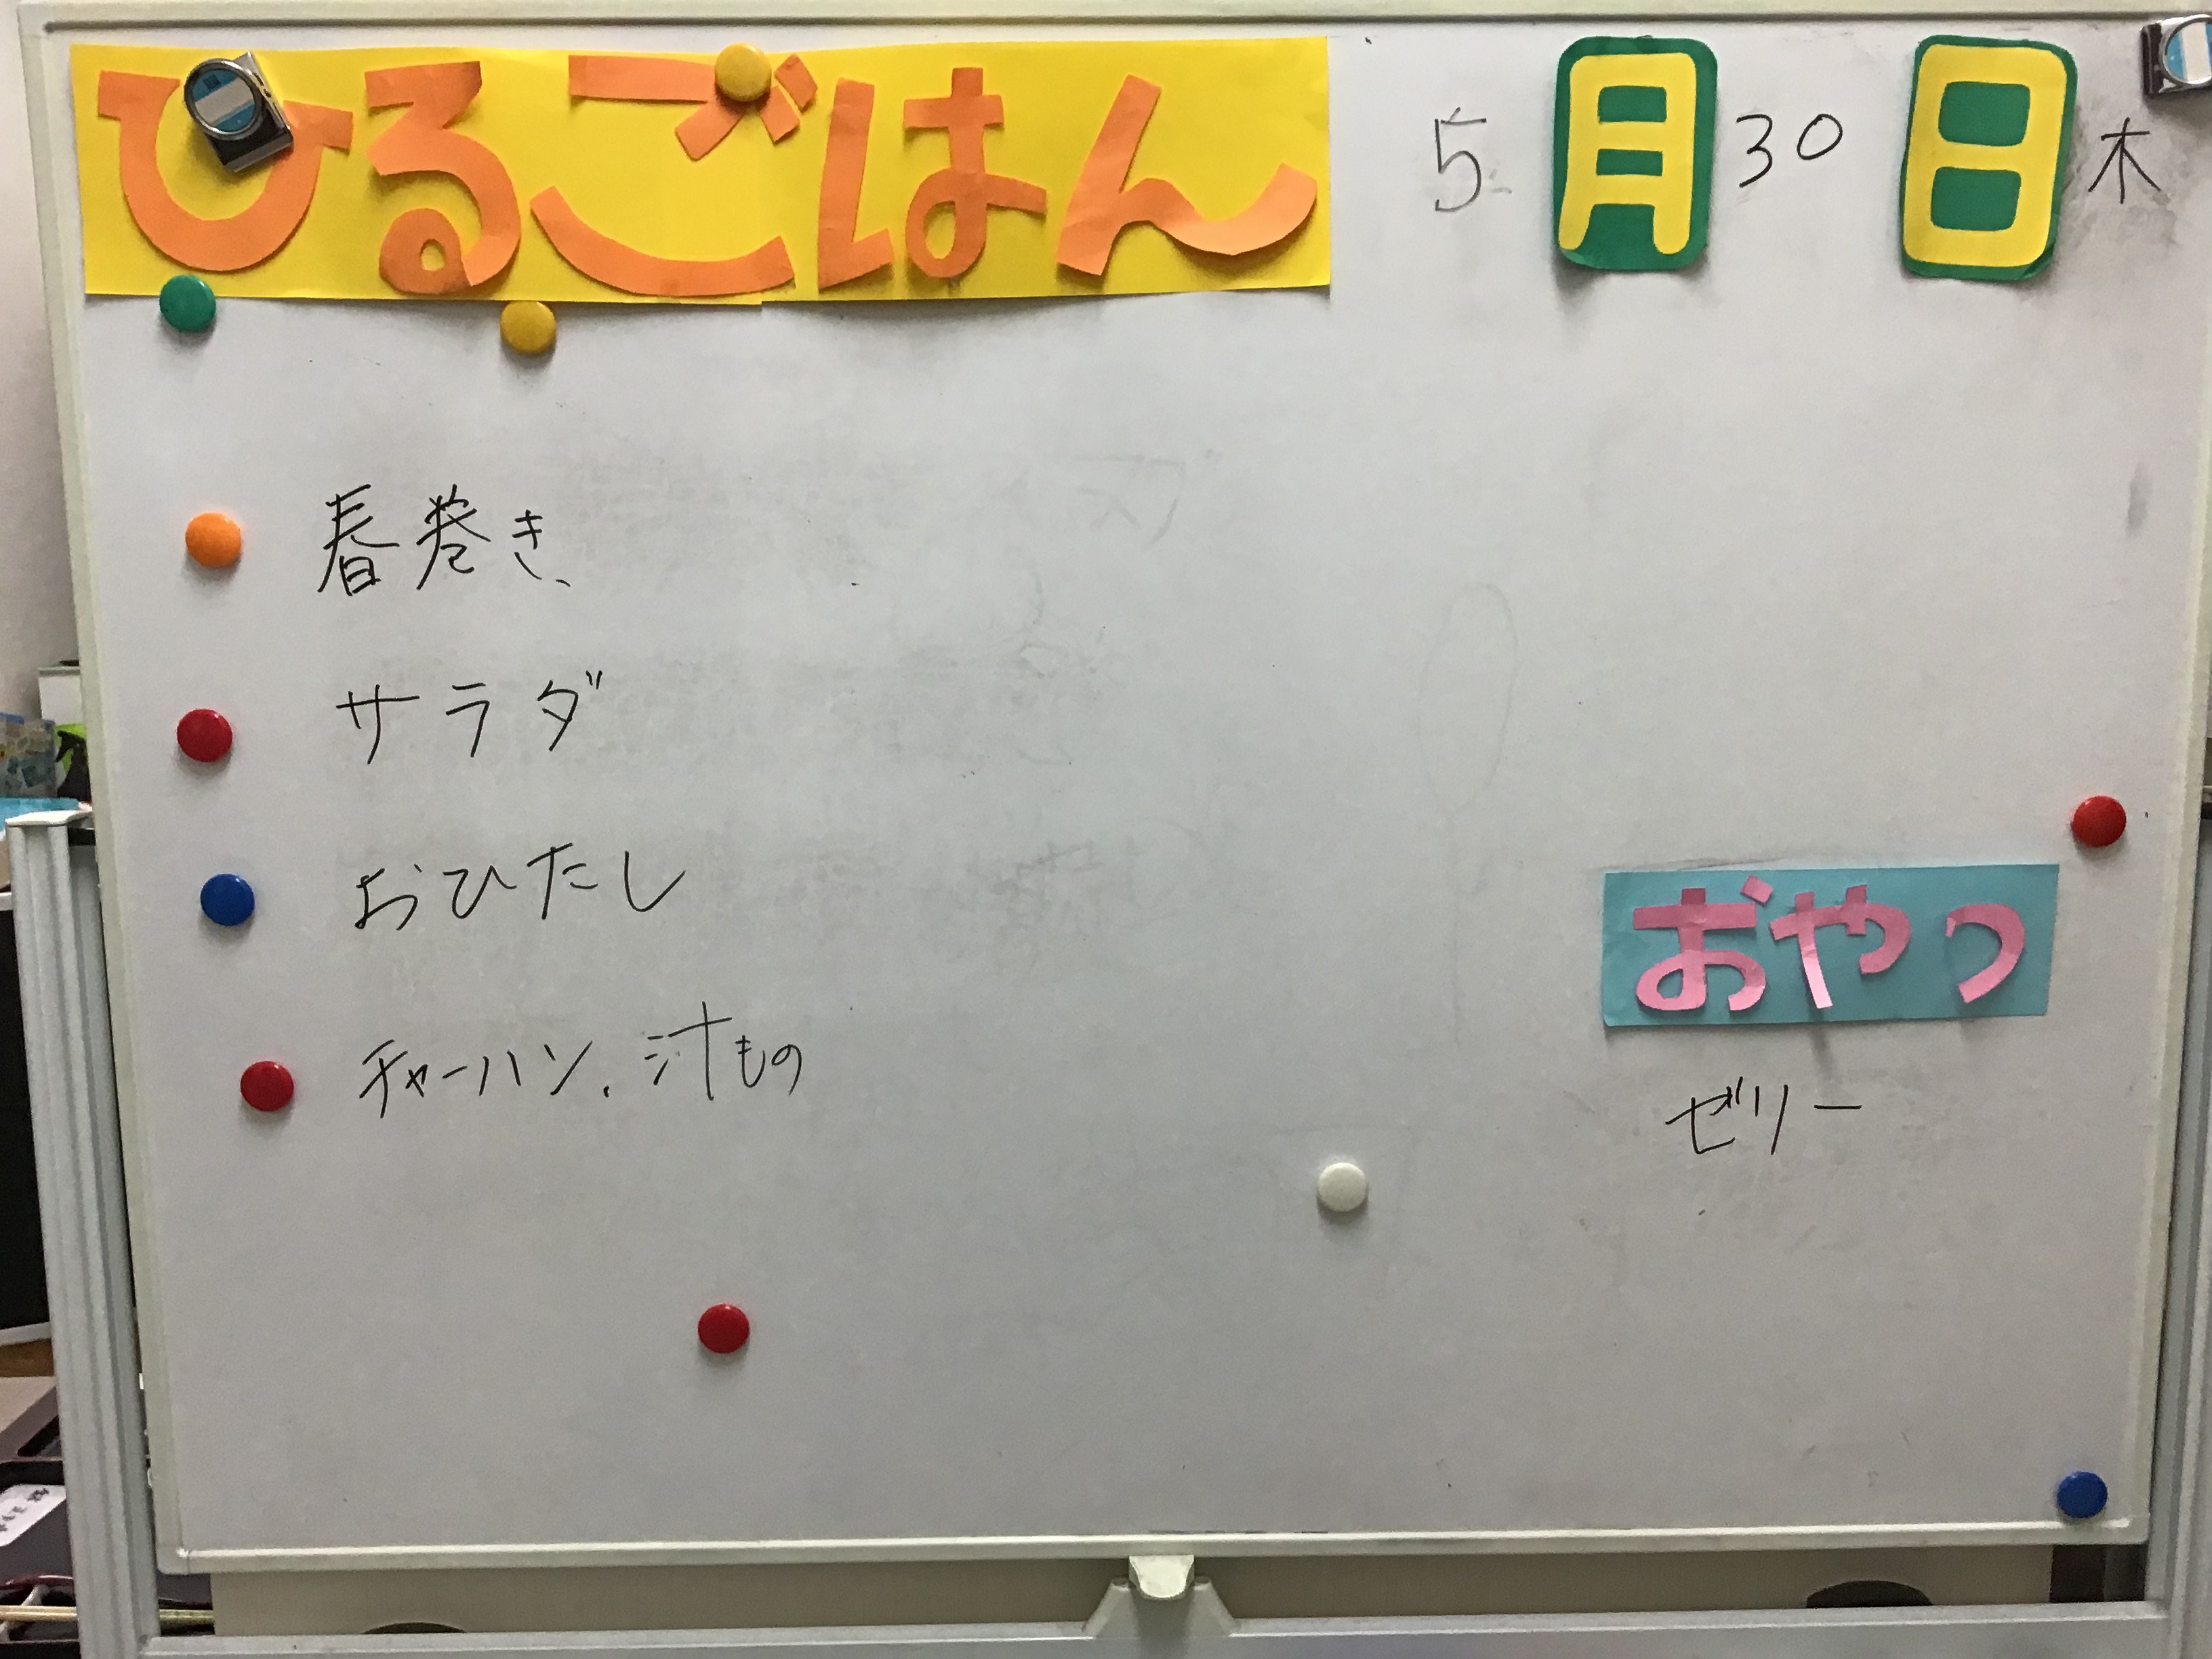 ひるごはん
5月30日 木
春巻き
サラダ
おひたし
チャーハン、汁もの
おやつ
ゼリー